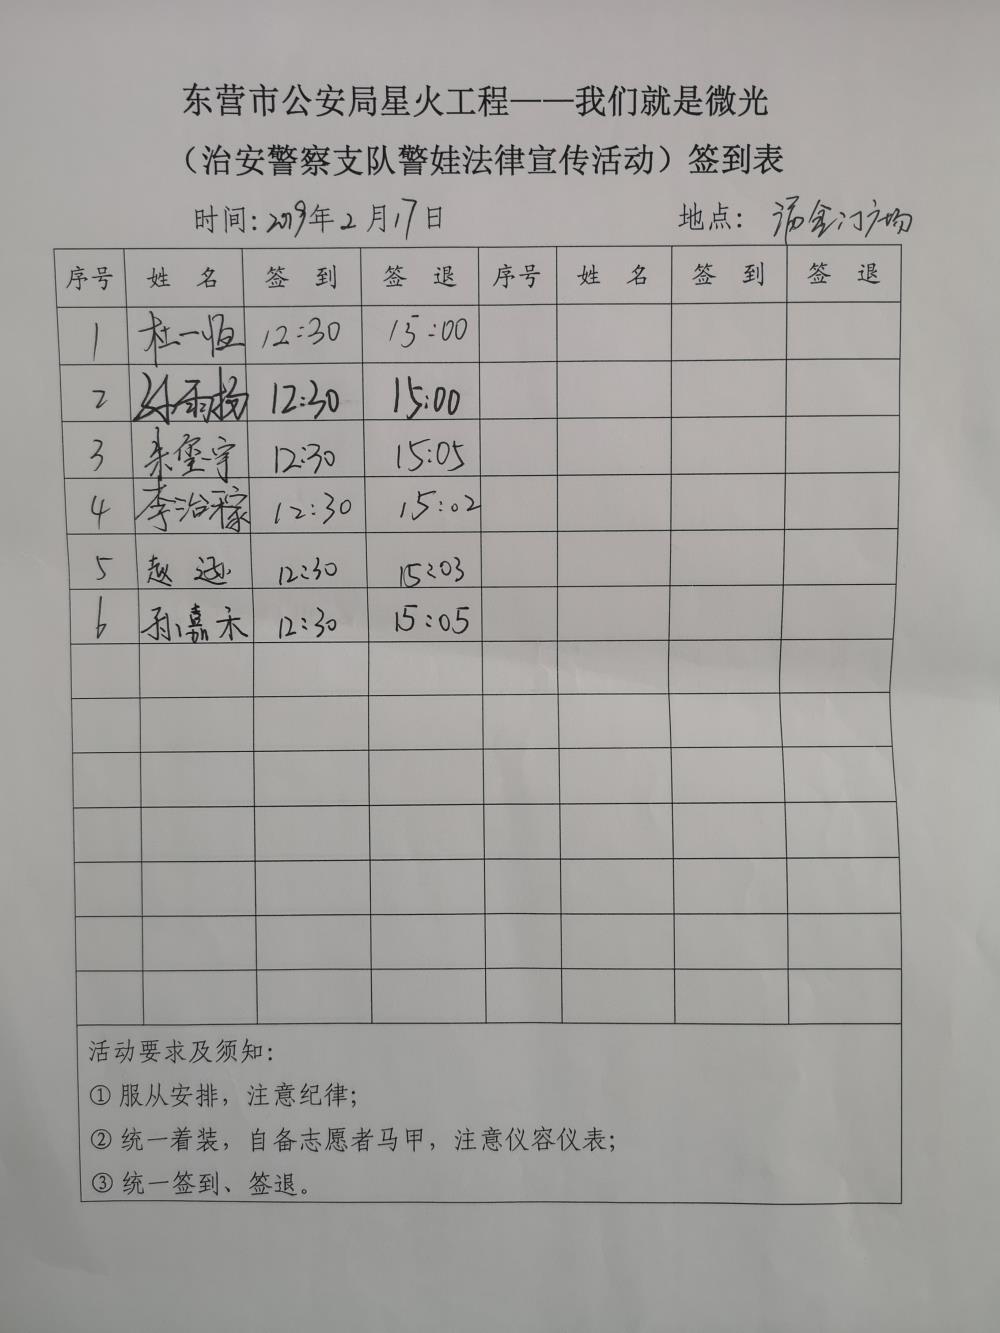 东营市公安局星火工程——我们就是微光
（治安警察支队警娃法律宣传活动）签到表
时间：2019年2月17日 地点：金门广场
序号 姓名 签到 签退 序号 姓名 签到 签退
1 杜一恒 12:30 15:00
2 雨扬 12:30 15:00
3 朱玺宇 12:30 15:05
4 李治稼 12:30 15:02
5 赵逊 12:30 15:03
6 孙嘉禾 12:30 15:05
活动要求及须知：
① 服从安排，注意纪律；
② 统一着装，自备志愿者马甲，注意仪容仪表；
③ 统一签到、签退。